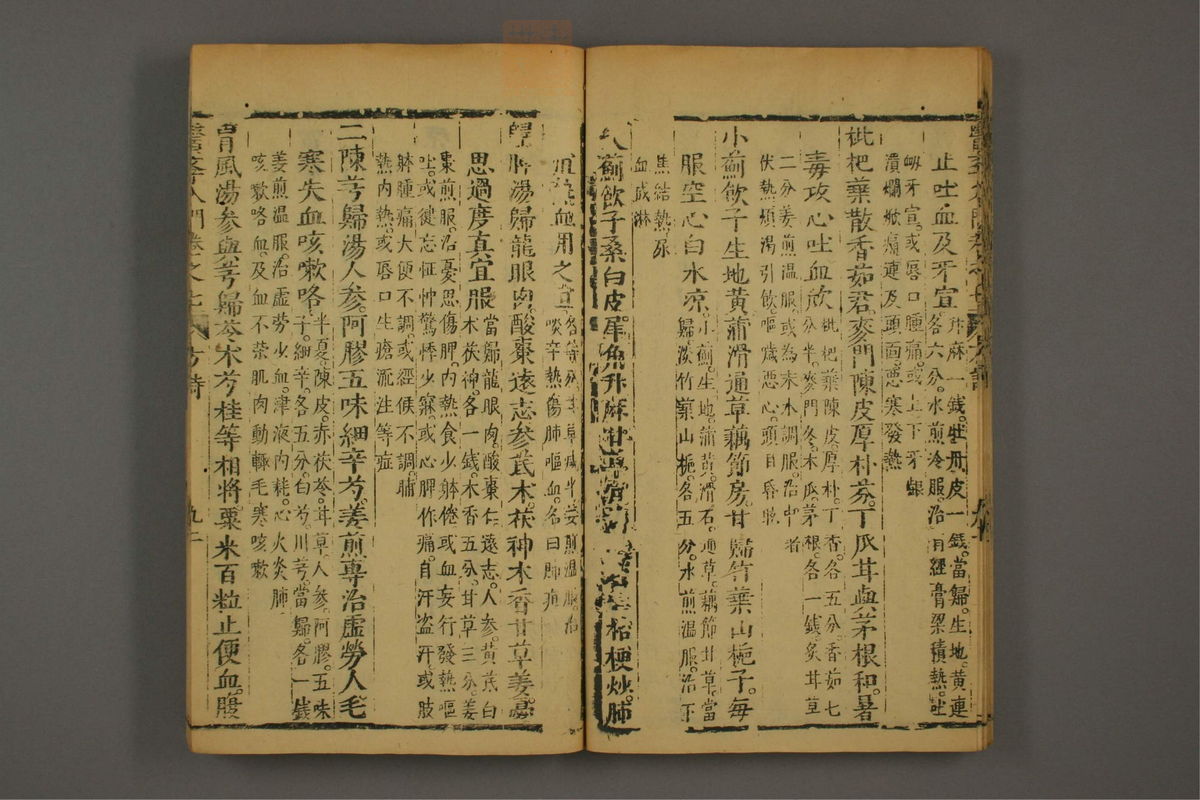 止吐血及牙宣升麻一錢牡丹皮一錢當歸生地黃連
各六分水煎冷服治胃經膏粱積熱吐
衂牙宣或唇口腫痛或上下牙齦
潰爛焮痛連及頭面惡寒發熱
枇杷葉散香茹君麥門陳皮厚朴丁瓜甘與茅根和暑
毒攻心吐血飲枇杷葉陳皮厚朴丁香各五分香茹七
分半麥門冬木瓜茅根各一錢炙甘草
二分姜煎溫服或為末水調服治中暑
伏熱煩渴引飲嘔噦惡心頭目昏眩
小薊飲子生地黃蒲滑通草藕節房甘歸竹葉山梔子每
服空心白水凉小薊生地蒲黃滑石通草藕節甘草當
歸淡竹葉山梔各五分水煎溫服治下
焦結熱尿
血成淋
薊飲子桑白皮犀角升麻甘草桔梗炒肺
血用之宜各等分甘草減半姜煎溫服治
啖辛熱傷肺嘔血名曰肺疽
歸脾湯歸龍眼肉酸棗遠志參芪木茯神木香甘草姜棗
思過度真宜服當歸龍眼肉酸棗仁遠志人參黃芪白
木茯神各一錢木香五分甘草三分姜
棗煎服治憂思傷脾內熱食少躰倦或血妄行發熱嘔
吐或健忘怔忡驚悸少寐或心脾作痛自汗盜汗或肢
躰腫痛大便不調或經候不調晡
熱內熱或唇口生瘡流注等症
二陳芎歸湯人參阿膠五味細辛芍姜煎專治虛勞人毛
寒失血咳嗽咯半夏陳皮赤茯苓甘草人參阿膠五味
子細辛各五分白芍川芎當歸各一錢
姜煎溫服治虛勞少血津液內耗心火炎肺
咳嗽咯血及血不榮肌肉動輒毛寒咳嗽
胃風湯參與芎歸苓木芍桂等相將粟米百粒止便血腹